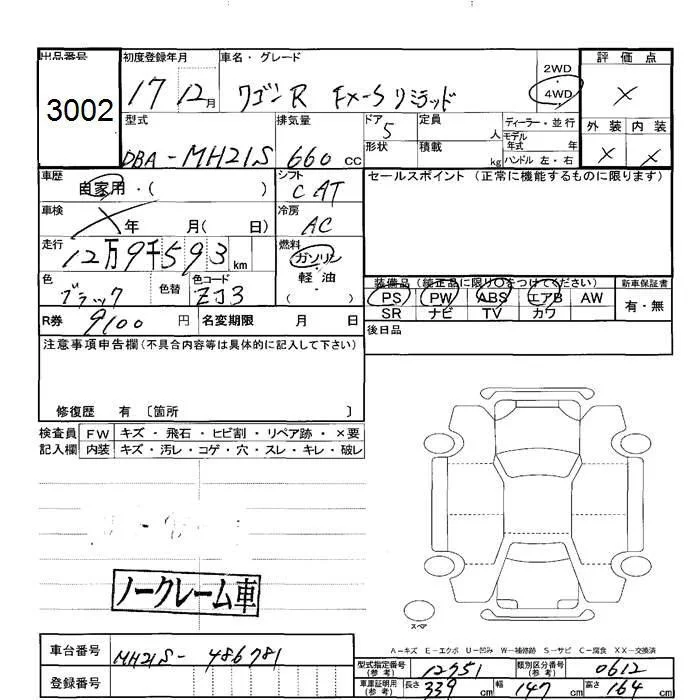 出品番号 初度登録年月 車名・グレード 2WD 評価点
3002 17 12月 ワゴンR FX-Sリミテッド 4WD ×
型式 排気量 ドア 5 定員 人 ディーラー・並行 外装 内装
DBA-MH21S 660cc 形状 積載 kg モデル年式 年 × ×
ハンドル 左・右
車歴 自家用・( ) シフト C AT セールスポイント(正常に機能するものに限ります)
車検 × 年 月( 日) 冷房 AC
走行 12万9千593km 燃料 ガソリン
軽油
( )
色 ブラック 色替 色コード ZJ3 装備品(純正品に限り〇をつけてください) 新車保証書
PS PW ABS エアB AW 有・無
R券 9100円 名変期限 月 日 SR ナビ TV カワ
後日品
注意事項申告欄(不具合内容等は具体的に記入して下さい)
修復歴 有 〔箇所 〕
検査員 FW キズ・飛石・ヒビ割・リペア跡・×要
記入欄 内装 キズ・汚レ・コゲ・穴・スレ・キレ・破レ
ノークレーム車
スペア
A-キズ E-エクボ U-凹み W-補修跡 S-サビ C-腐食 XX-交換済
車台番号 MH21S-486781 型式指定番号(参考) 12751 類別区分番号(参考) 0612
登録番号 車庫証明用(参考) 長さ 339cm 幅 147cm 高さ 164cm